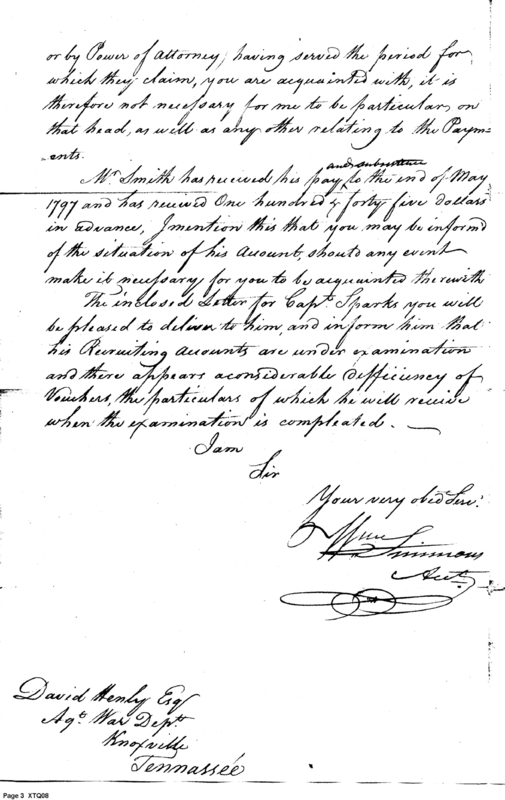 or by Power of Attorney, having served the period for
which they claim, you are acquainted with, it is
therefore not necessary for me to be particular on
that head, as well as any other relating to the Paym-
-ents.
Mr Smith has received his pay and subsistence to the end of May
1797 and has received One hundred & forty five dollars
in advance, I mention this that you may be informd
of the situation of his Account, should any event
make it necessary for you to be acquainted therewith
The inclosed Letter for Capt. Sparks you will
be pleased to deliver to him, and inform him that
his Recruiting Accounts are under examination
and there appears a considerable defficiency of
Vouchers, the particulars of which he will receive
when the examination is compleated. —
I am
Sir
Your very obed. Serv.
Wm Simmons
Acct.
David Henly Esqr
Agt. War Dept.
Knoxville
Tennassée
Page 3 XTQ08